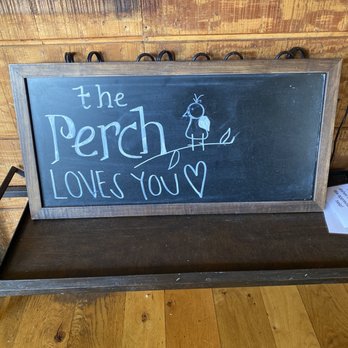 the
Perch
LOVES YOU ♡